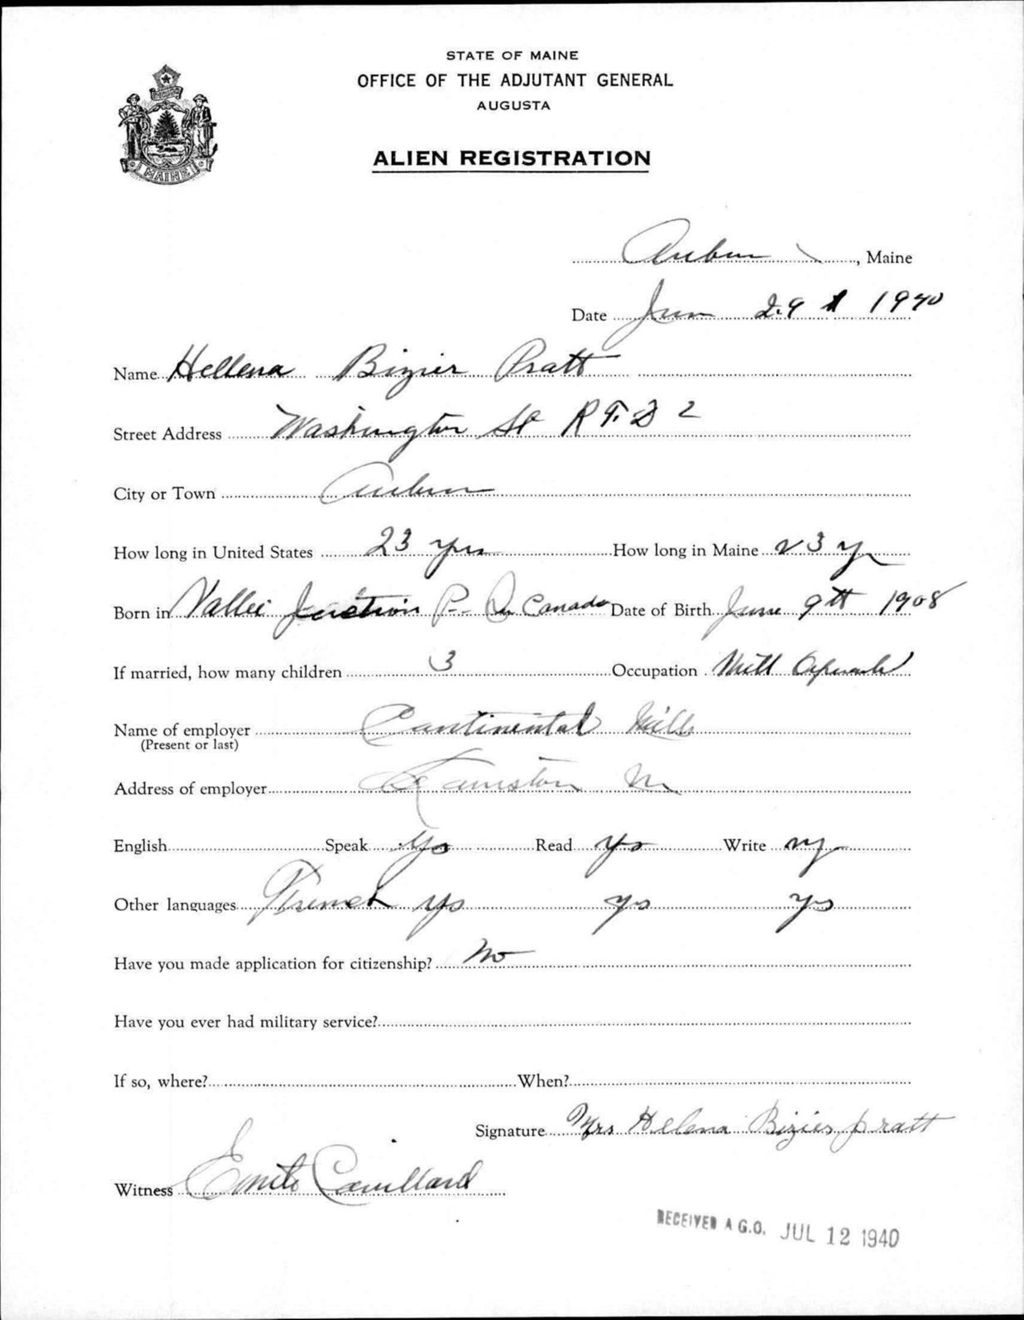 STATE OF MAINE
OFFICE OF THE ADJUTANT GENERAL
AUGUSTA
MAINE
ALIEN REGISTRATION
Auburn, Maine
Date June 29 1940
Name Hellena Bizier Pratt
Street Address Washington St R F D 2
City or Town Auburn
How long in United States 23 yrs How long in Maine 23 y
Born in Vallei Junction P Qu Canada Date of Birth June 9th 1908
If married, how many children 3 Occupation Mill
Name of employer Continental Mill
(Present or last)
Address of employer Lewiston M
English Speak Yes Read Yes Write
Other languages French yes yes yes
Have you made application for citizenship? No
Have you ever had military service?
If so, where? When?
Signature Mrs Helena Bizier Pratt
Witness
RECEIVED A.G.O. JUL 12 1940